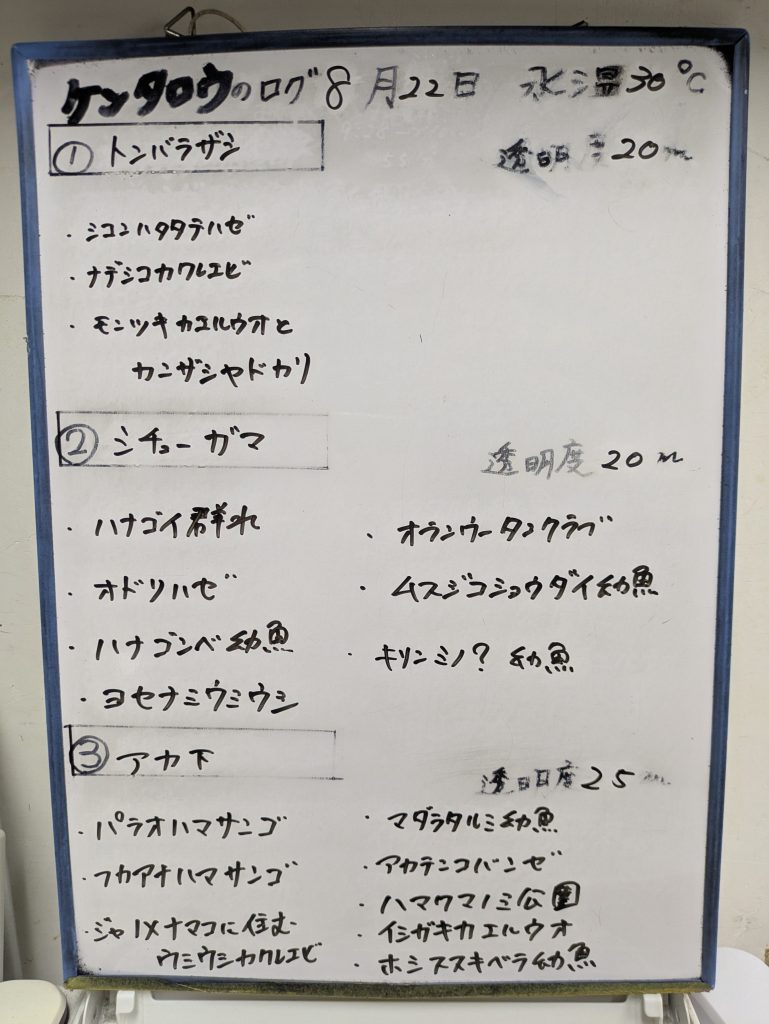 ケンタロウのログ 8月22日 水温30℃
① トンバラザシ 透明度20m
・シコンハタタテハゼ
・ナデシコカクレエビ
・モンツキカエルウオと
カンザシヤドカリ
② シチューガマ 透明度20m
・ハナゴイ群れ
・オドリハゼ
・ハナゴンベ幼魚
・ヨセナミウミウシ
・オランウータンクラブ
・ムスジコショウダイ幼魚
・キリンミノ? 幼魚
③ アカ下 透明度25m
・パラオハマサンゴ
・フカアナハマサンゴ
・ジャノメナマコに住む
ウミウシカクレエビ
・マダラタルミ幼魚
・アカテンコバンゼ
・ハマクマノミ公園
・イシガキカエルウオ
・ホシススキベラ幼魚